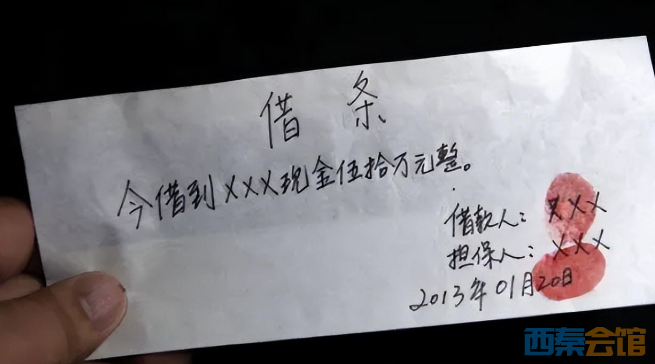 借条
今借到XXX现金伍拾万元整。
借款人：XXX
担保人：XXX
2013年01月20日
西秦会馆